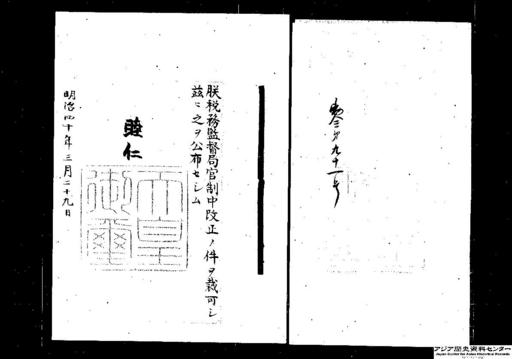 勅令第九十一号
朕税務監督局官制中改正ノ件ヲ裁可シ
茲ニ之ヲ公布セシム
睦仁
天皇
御璽
明治四十年三月二十九日
アジア歴史資料センター
Japan Center for Asian Historical Records